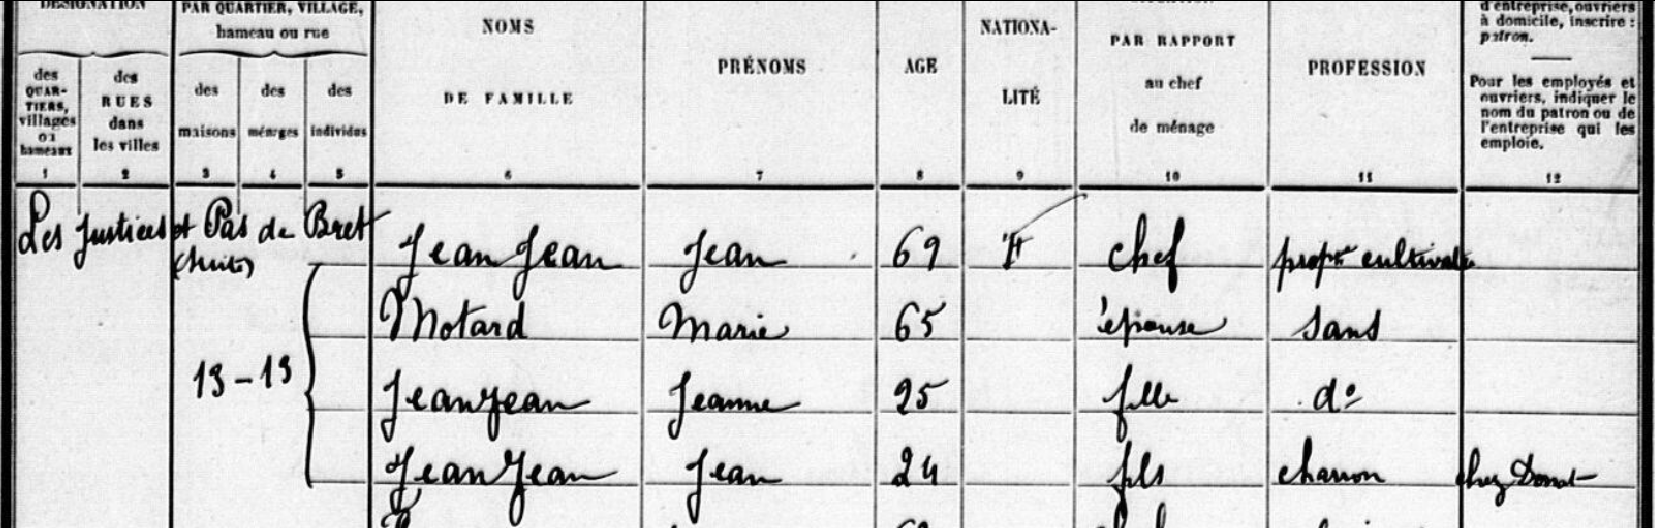 DÉSIGNATION
PAR QUARTIER, VILLAGE,
hameau ou rue
des
QUAR-
TIERS,
villages
ou
hameaux
1
des
RUES
dans
les villes
2
des
maisons
3
des
ménages
4
des
individus
5
NOMS
DE FAMILLE
6
PRÉNOMS
7
AGE
8
NATIONA-
LITÉ
9
PAR RAPPORT
au chef
de ménage
10
PROFESSION
11
d'entreprise, ouvriers
à domicile, inscrire :
patron.
Pour les employés et
ouvriers, indiquer le
nom du patron ou de
l'entreprise qui les
emploie.
12
Les Justices et Pas de Bret
(suite)
Jean Jean Jean 69 F chef propre cultivat
Motard Marie 65 épouse sans
13-13
JeanJean Jeanne 25 fille do
JeanJean Jean 24 fils charron chez